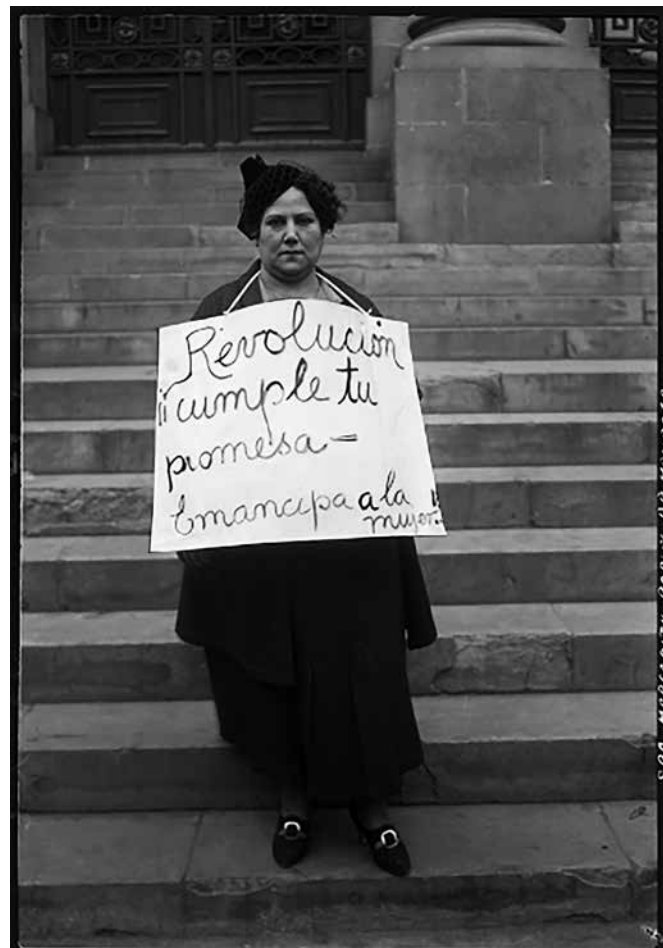 Revolución
¡¡cumple tu
promesa-
Emancipa a la
mujer!!